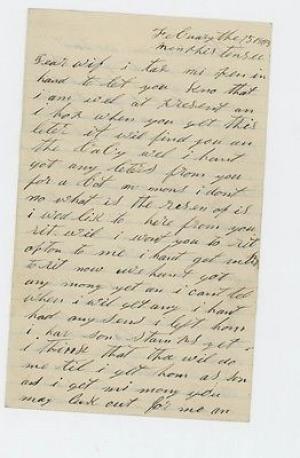 Febuary the 15
Memphes tensee
Dear wif i tak mi pen in
hand to let you kno that
i am wel at present an
i hop when you get this
leter it wil find you an
the baby wel i hant
got any leters from you
for a bot m mons i dont
no what is the reson of is
i wod lik to here from you
rit wil i wont you to rit
opton to me i hant got
to rit now we hant got
any mony yet an i cant tel
when i wil get any i hant
had any sens i left hom
i hav som stamps yet
i think that tha wil do
me til i get hom as son
as i get mi mony you
may look out for me an